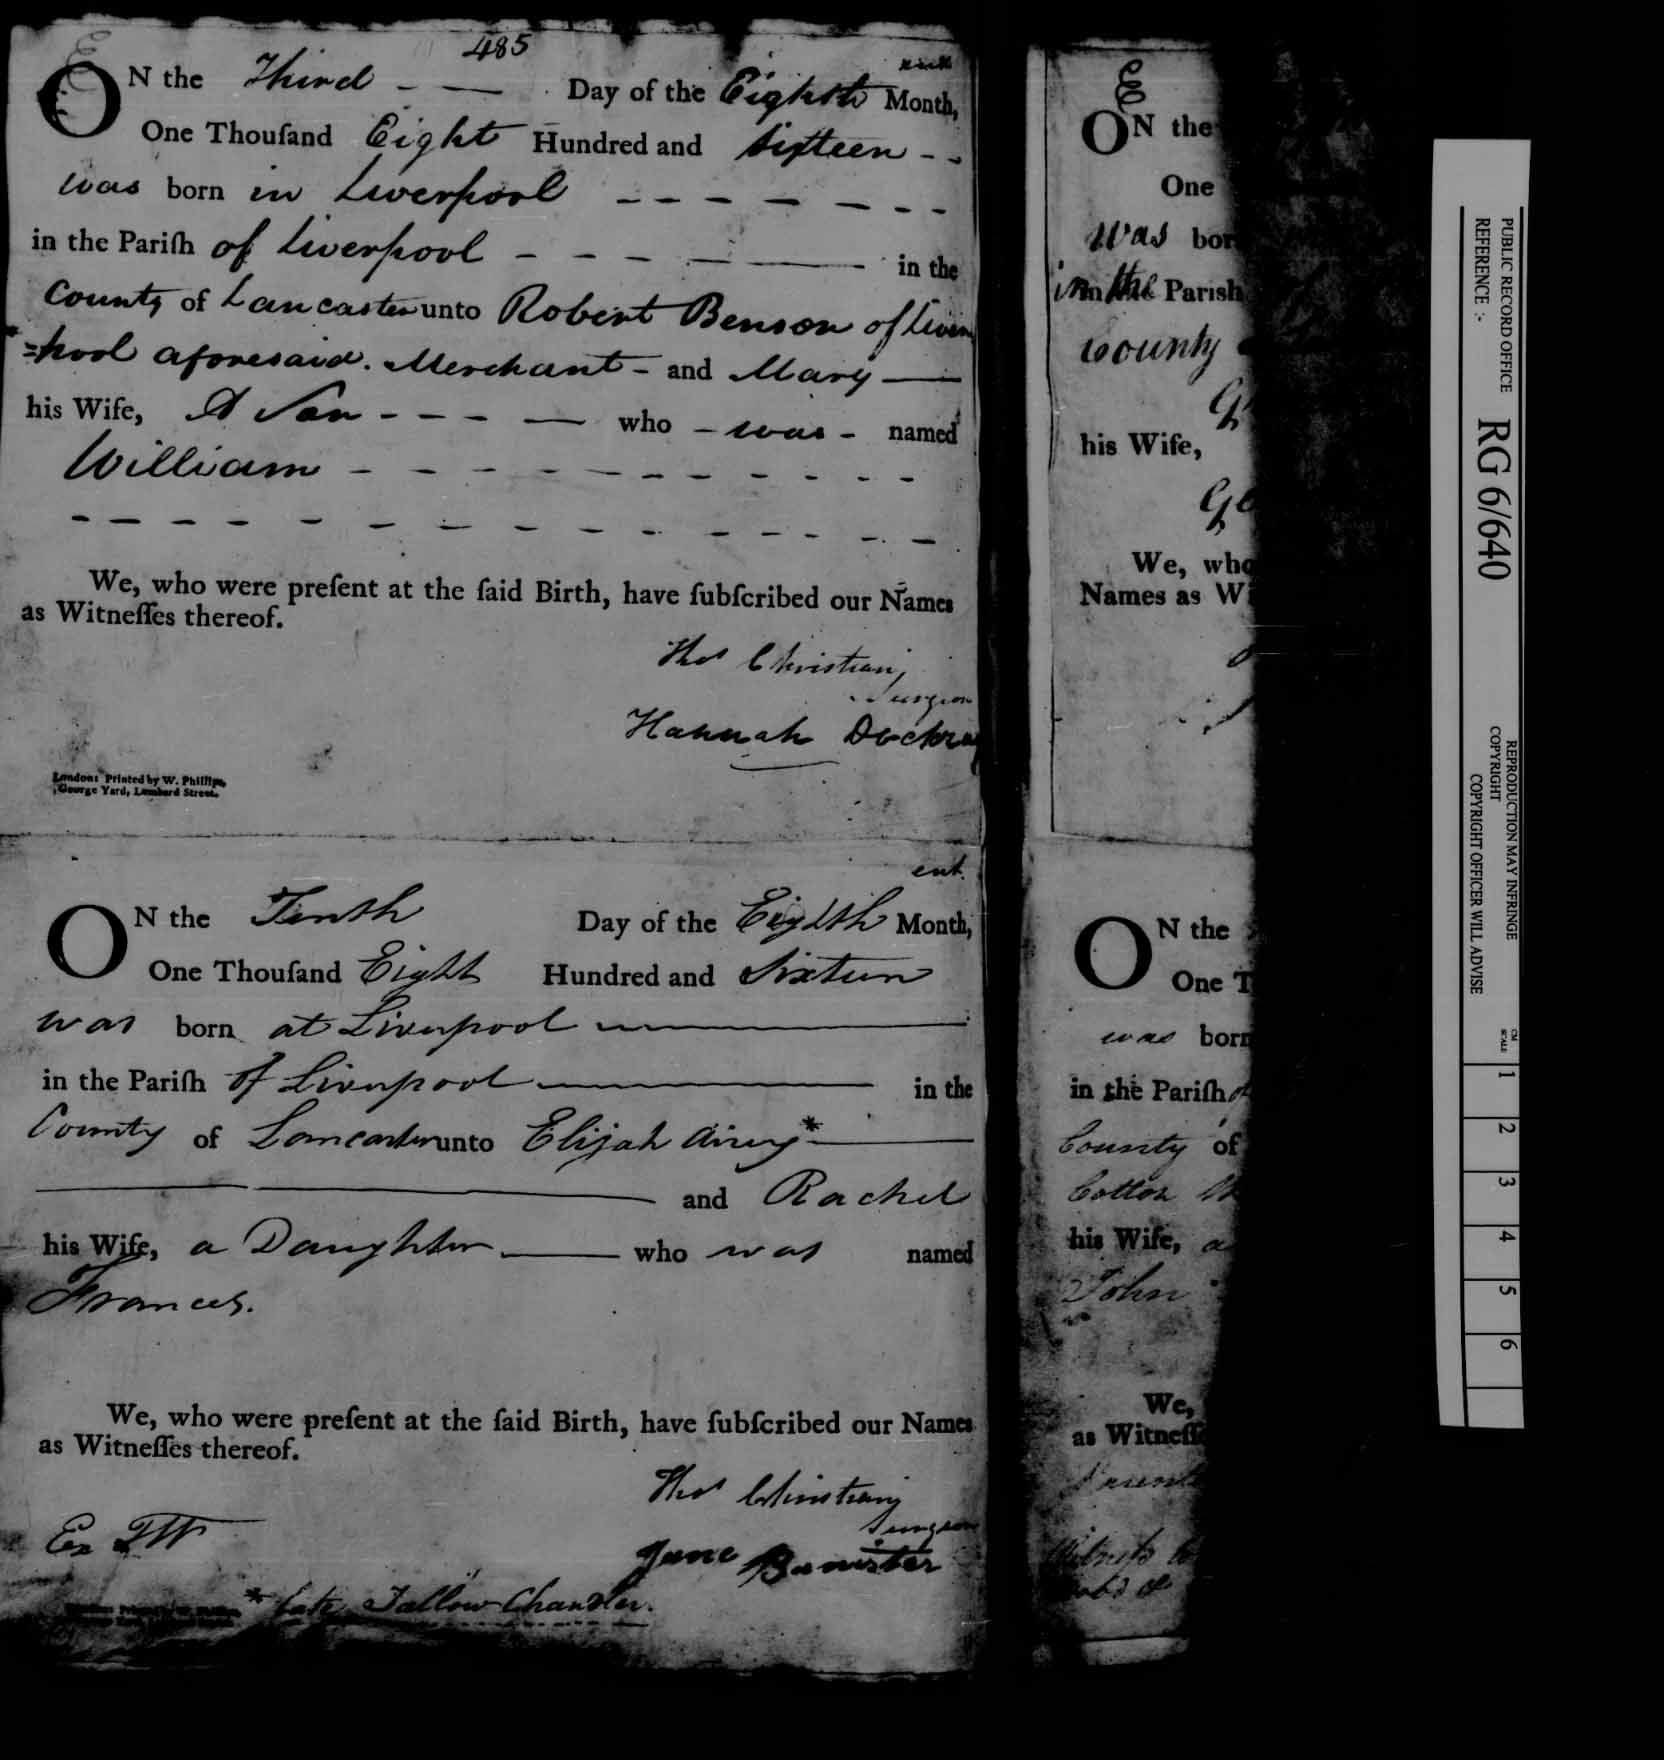 485
ON the Third - — Day of the Eighth Month,
One Thouſand Eight Hundred and Sixteen - -
was born in Liverpool - - - - - - - -
in the Pariſh of Liverpool - - - - — in the
County of Lancaster unto Robert Benson of Liver
=pool aforesaid. Merchant - and Mary —
his Wife, A Son - - - - — who - was - named
William - - - - - - - - - - -
- - - - - - - - - - - - - - -
We, who were preſent at the ſaid Birth, have ſubſcribed our Names
as Witneſſes thereof.
Thos Christian,
Surgeon
Hannah Dockray
London: Printed by W. Phillips,
George Yard, Lombard Street.
ent.
ON the Tenth Day of the Eighth Month,
One Thouſand Eight Hundred and Sixteen
was born at Liverpool —
in the Pariſh of Liverpool — in the
County of Lancaster unto Elijah Airey* —
— and Rachel
his Wife, a Daughter — who was named
Frances.
We, who were preſent at the ſaid Birth, have ſubſcribed our Names
as Witneſſes thereof.
Thos Christian,
Surgeon
Jane Banister
Ex TW
* Late Tallow Chandler.
ON the
One
was bor
in the Parish
County
his Wife,
Ge
We, who
Names as Wi
ON the
One T
was born
in the Pariſh of
County of
Cotton
his Wife, a
John
We,
as Witneſſe
PUBLIC RECORD OFFICE
REFERENCE :-
RG 6/640
REPRODUCTION MAY INFRINGE
COPYRIGHT
COPYRIGHT OFFICER WILL ADVISE
CM
SCALE
1 2 3 4 5 6